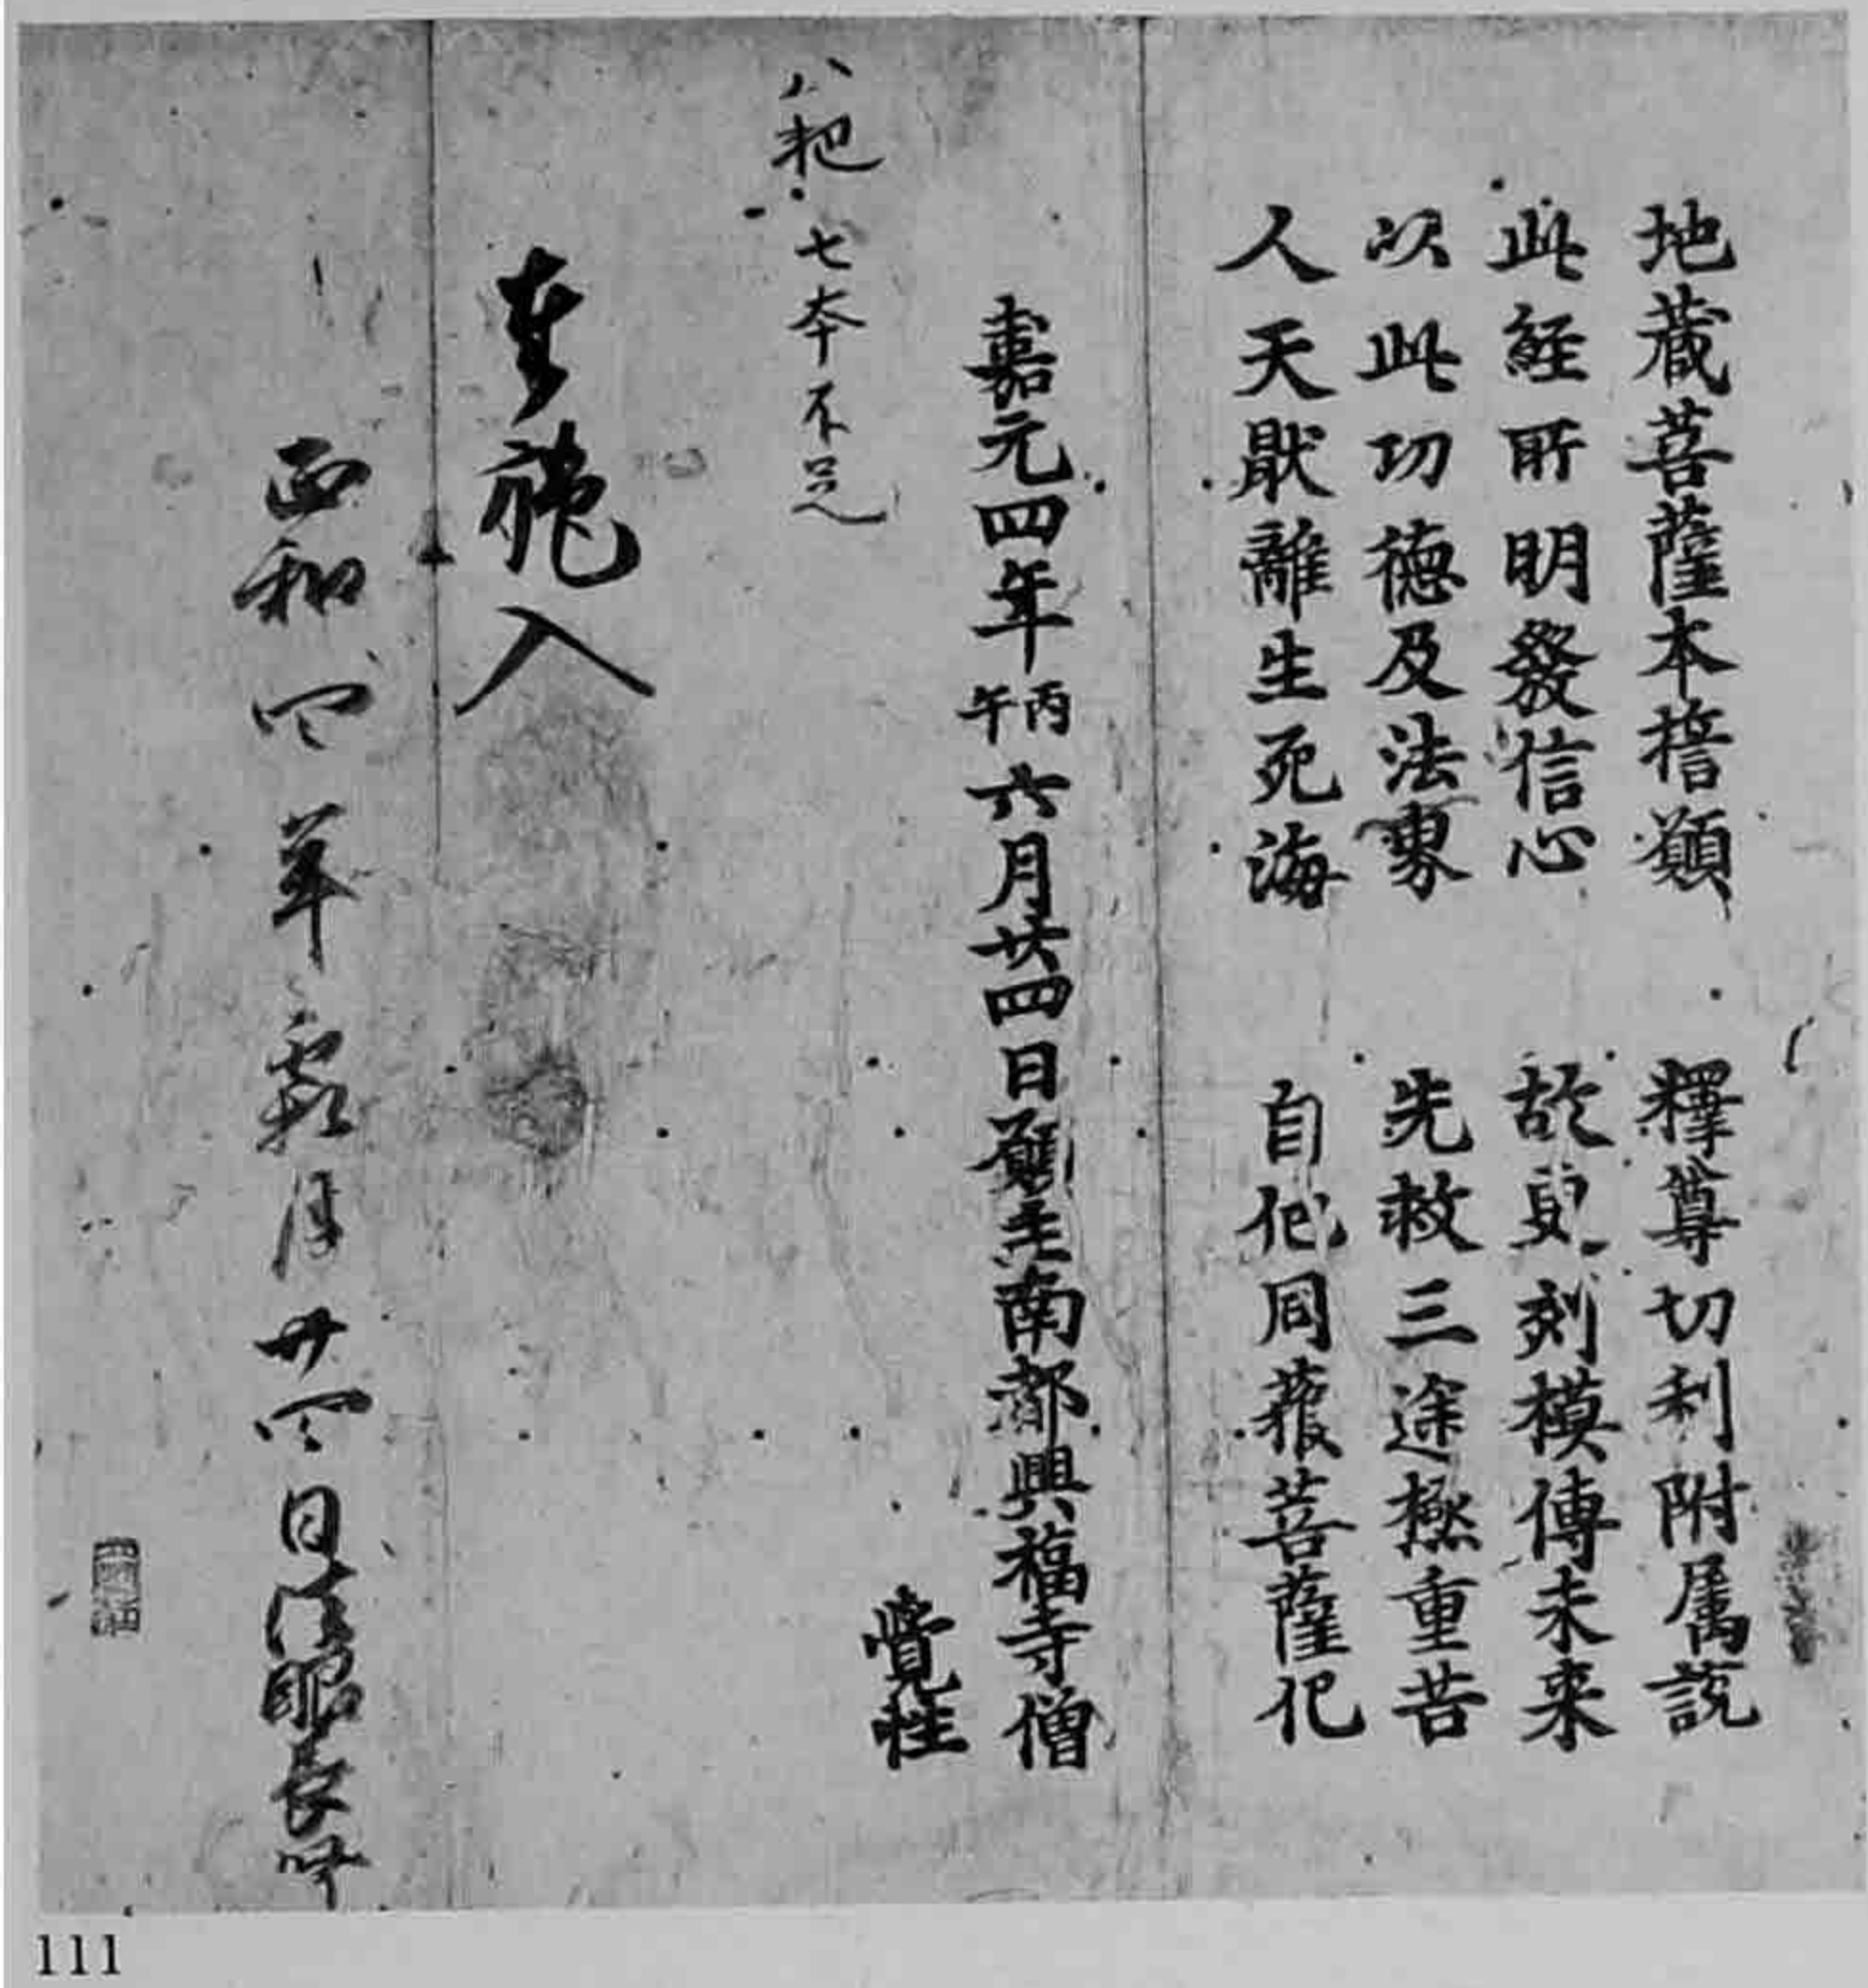 地蔵菩薩本擔願　釋尊切利附属説
此経所明發信心　故更刻模傳未来
以此功徳及法界　先救三途極重苦
人天猒離生死海　自他同蕟菩薩化
嘉元四年丙午六月廿四日願主南都興福寺僧
覺性
八杷
七本不足
入
正和四年霜月廿四日法眼長
111